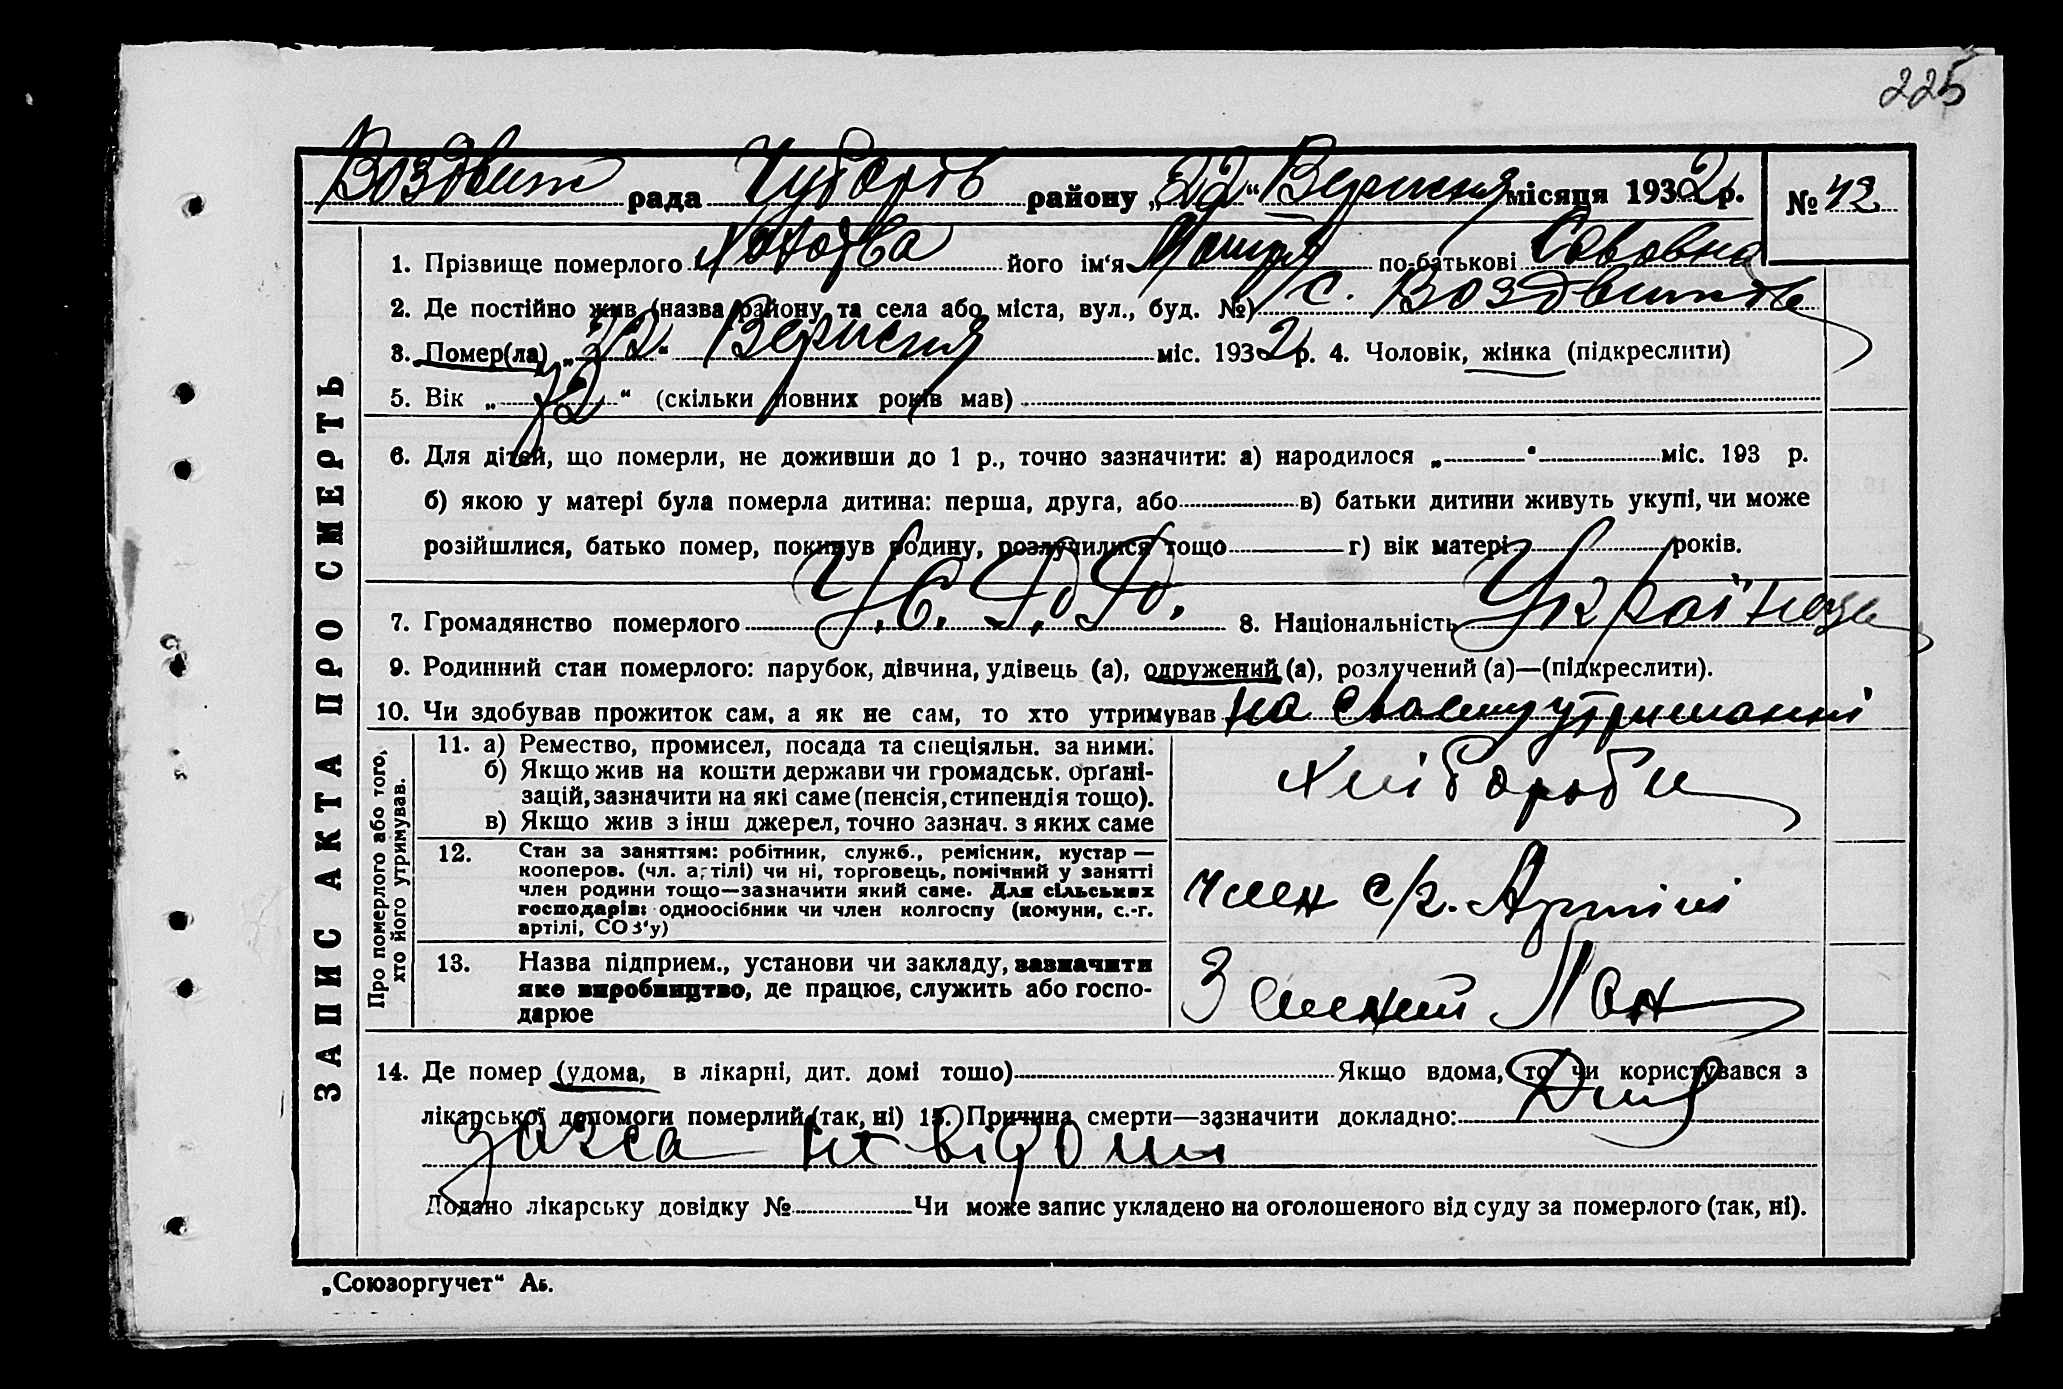 225
Воздвиж рада Чубарів району „22“ Вересня місяця 1932 р. № 42
1. Прізвище померлого його ім'я по-батькові Савовна
2. Де постійно жив (назва району та села або міста, вул., буд. №) с. Воздвижівк
3. Помер(ла) „ “ Вересня міс. 1932 р. 4. Чоловік, жінка (підкреслити)
5. Вік „72“ (скільки повних років мав)
6. Для дітей, що померли, не доживши до 1 р., точно зазначити: а) народилося „ “ міс. 193 р.
б) якою у матері була померла дитина: перша, друга, або в) батьки дитини живуть укупі, чи може
розійшлися, батько помер, покинув родину, розлучилися тощо г) вік матері років.
7. Громадянство померлого У.С.Р.Р. 8. Національність Українець
9. Родинний стан померлого: парубок, дівчина, удівець (а), одружений (а), розлучений (а)—(підкреслити).
10. Чи здобував прожиток сам, а як не сам, то хто утримував на своему утриманні
ЗАПИС АКТА ПРО СМЕРТЬ
Про померлого або того,
хто його утримував.
11. а) Ремество, промисел, посада та спеціяльн. за ними.
б) Якщо жив на кошти держави чи громадськ. орґані-
зацій, зазначити на які саме (пенсія, стипендія тощо).
в) Якщо жив з інш джерел, точно зазнач. з яких саме
хліборобн
12. Стан за заняттям: робітник, служб., ремісник, кустар —
кооперов. (чл. артілі) чи ні, торговець, помічний у занятті
член родини тощо—зазначити який саме. Для сільських
господарів: одноосібник чи член колгоспу (комуни, с.-г.
артілі, СОЗ'у)
член с/г. Артілі
13. Назва підприєм., установи чи закладу, зазначити
яке виробництво, де працює, служить або госпо-
дарює
Зелений Лан
14. Де помер (удома, в лікарні, дит. домі тощо) Якщо вдома, то чи користувався з
лікарської допомоги померлий (так, ні) 15. Причина смерти—зазначити докладно: Для
загса невідомі
Додано лікарську довідку № Чи може запис укладено на оголошеного від суду за померлого (так, ні).
„Союзоргучет“ Аб.